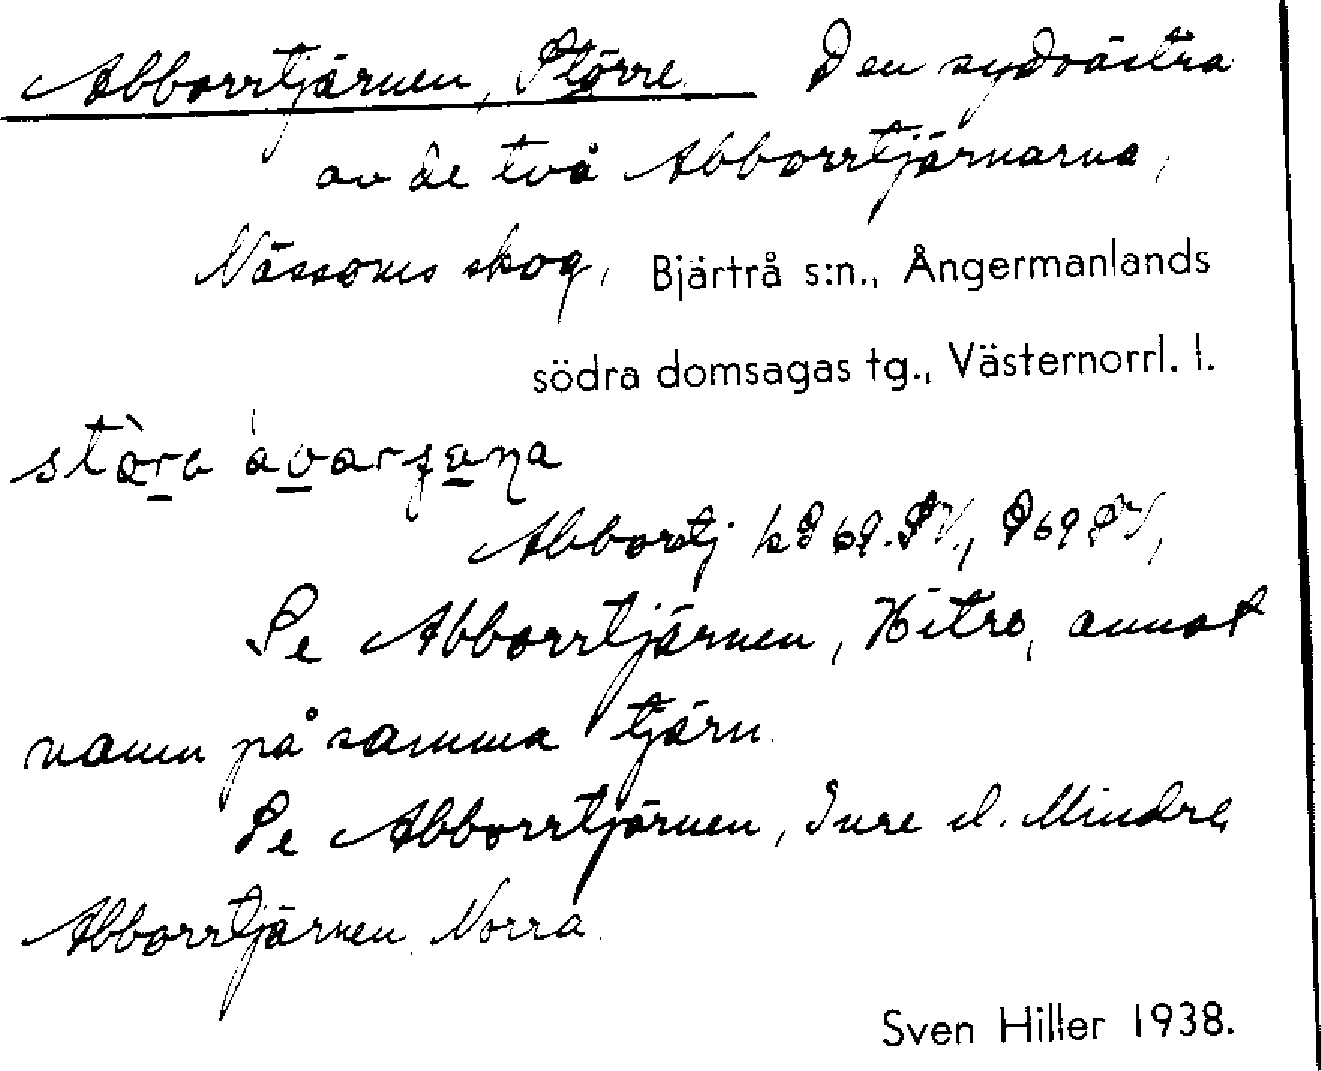 Abborrtjärnen, Större Den sydvästra
av de två Abborrtjärnarna,
Nässoms skog, Bjärtrå s:n., Ångermanlands
södra domsagas tg., Västernorrl. l.
Abbortj
Se Abborrtjärnen, Hitre, annat
namn på samma tjärn.
Se Abborrtjärnen, Inre el. Mindre,
Abborrtjärnen Norra.
Sven Hiller 1938.